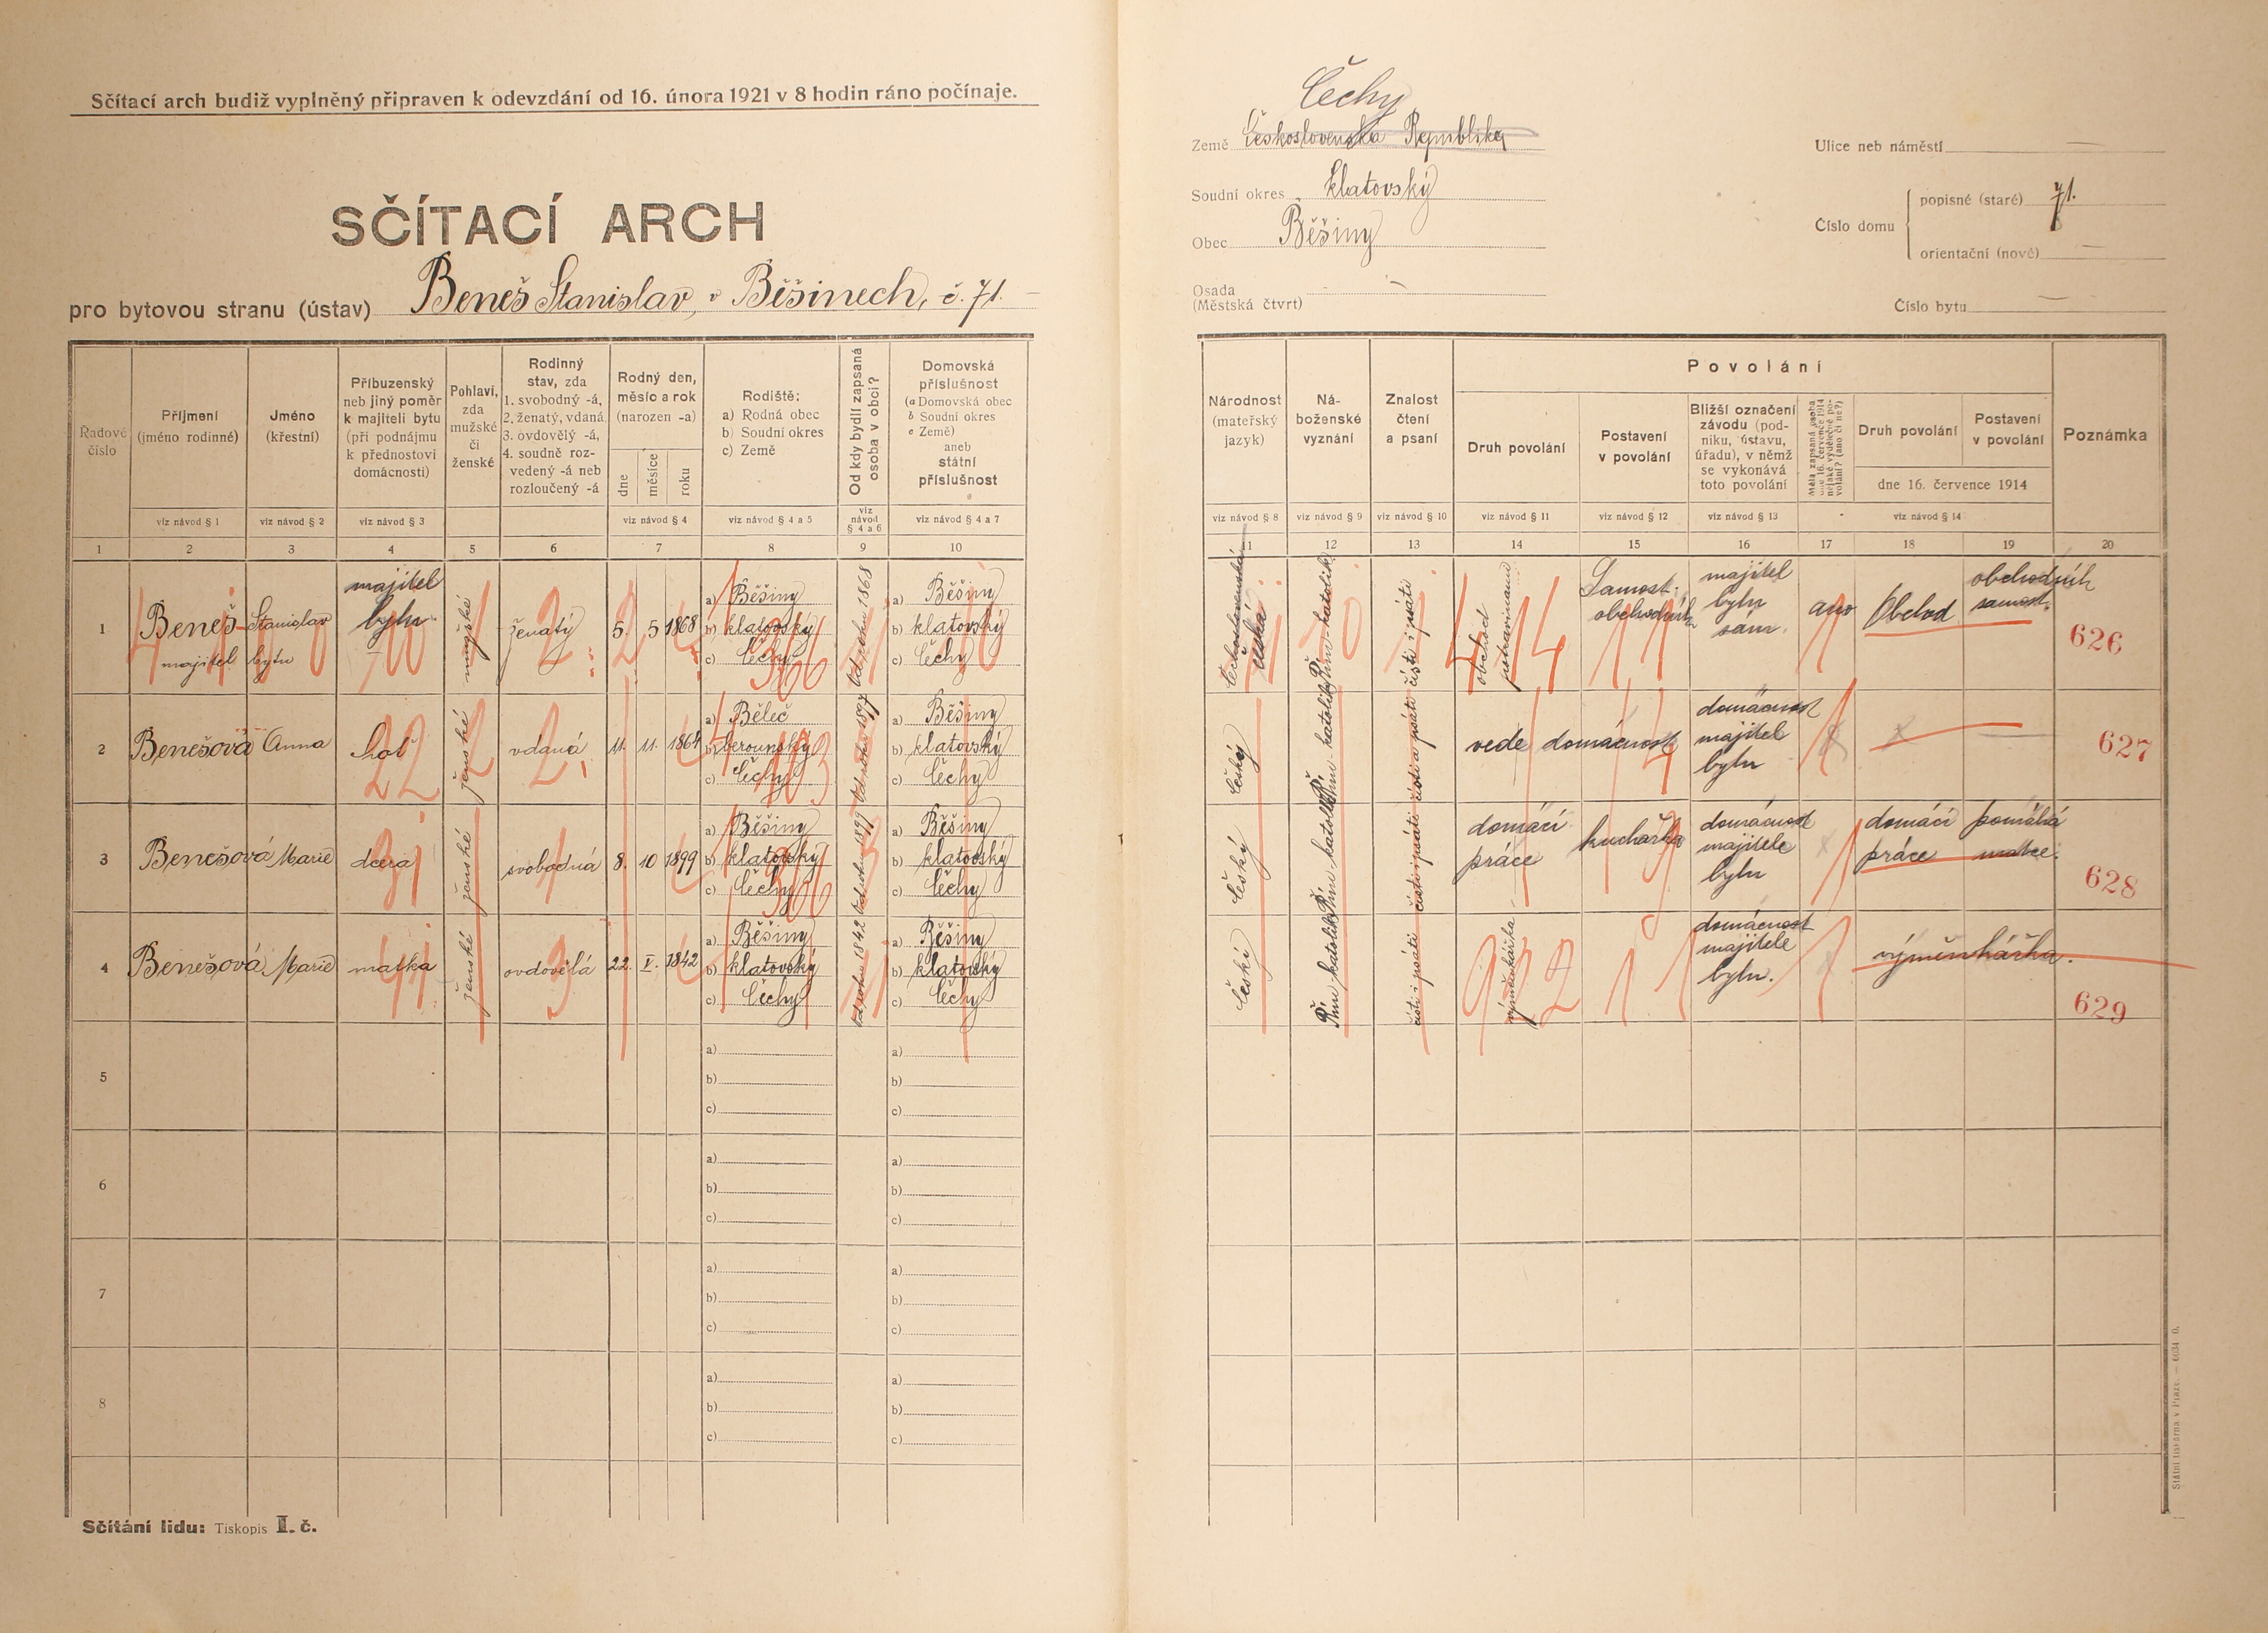 Sčítací arch budiž vyplněný připraven k odevzdání od 16. února 1921 v 8 hodin ráno počínaje.
SČÍTACÍ ARCH
pro bytovou stranu (ústav) Beneš Stanislav, v Běšinech, č. 71.
Čechy
Země Československá Republika
Soudní okres Klatovský
Obec Běšiny
Osada
(Městská čtvrt)
Ulice neb náměstí
Číslo domu
popisné (staré) 71.
orientační (nové)
Číslo bytu
Řadové číslo
Příjmení (jméno rodinné)
viz návod § 1
Jméno (křestní)
viz návod § 2
Příbuzenský neb jiný poměr k majiteli bytu (při podnájmu k přednostovi domácnosti)
viz návod § 3
Pohlaví, zda mužské či ženské
Rodinný stav, zda 1. svobodný -á, 2. ženatý, vdaná 3. ovdovělý -á, 4. soudně rozvedený -á neb rozloučený -á
Rodný den, měsíc a rok (narozen -a)
dne měsíce roku
viz návod § 4
Rodiště:
a) Rodná obec
b) Soudní okres
c) Země
viz návod § 4 a 5
Od kdy bydlí zapsaná osoba v obci?
viz návod § 4 a 6
Domovská příslušnost
(a Domovská obec
b Soudní okres
c Země)
aneb státní příslušnost
viz návod § 4 a 7
Národnost (mateřský jazyk)
viz návod § 8
Náboženské vyznání
viz návod § 9
Znalost čtení a psaní
viz návod § 10
Povolání
Druh povolání
viz návod § 11
Postavení v povolání
viz návod § 12
Bližší označení závodu (podniku, ústavu, úřadu), v němž se vykonává toto povolání
viz návod § 13
Měla zapsaná osoba dne 16. července 1914 nějaké výdělečné povolání? (ano či ne?)
Druh povolání
Postavení v povolání
dne 16. července 1914
viz návod § 14
Poznámka
1 2 3 4 5 6 7 8 9 10 11 12 13 14 15 16 17 18 19 20
1 Beneš Stanislav majitel bytu mužské ženatý 5. 5 1868
majitel bytu
a) Běšiny
b) klatovský
c) Čechy
Od roku 1868
a) Běšiny
b) klatovský
c) Čechy
Československá
česká
Řím. katolík
čísti i psáti
obchod potravinami
Samost. obchodník
majitel bytu sám.
ano
Obchod
obchodník samost.
626
2 Benešová Anna choť ženské vdaná 11. 11. 1864
a) Běleč
b) berounský
c) Čechy
Od roku 1897
a) Běšiny
b) klatovský
c) Čechy
Český
Řím. katolík
čísti a psáti
vede domácnost
domácnost majitel bytu
627
3 Benešová Marie dcera ženské svobodná 8. 10 1899
a) Běšiny
b) klatovský
c) Čechy
Od roku 1899
a) Běšiny
b) klatovský
c) Čechy
Český
Řím. katolík
čísti i psáti
domácí práce
kuchařka
domácnost majitele bytu
domácí práce
pomáhá matce.
628
4 Benešová Marie matka ženské ovdovělá 22. I. 1842
a) Běšiny
b) klatovský
c) Čechy
Od roku 1842
a) Běšiny
b) klatovský
c) Čechy
Český
Řím. katolík
čísti i psáti
výměnkářka
domácnost majitele bytu.
výměnkářka.
629
5 a) b) c) a) b) c)
6 a) b) c) a) b) c)
7 a) b) c) a) b) c)
8 a) b) c) a) b) c)
Sčítání lidu: Tiskopis I. č.
Státní tiskárna v Praze. — 6034 0.